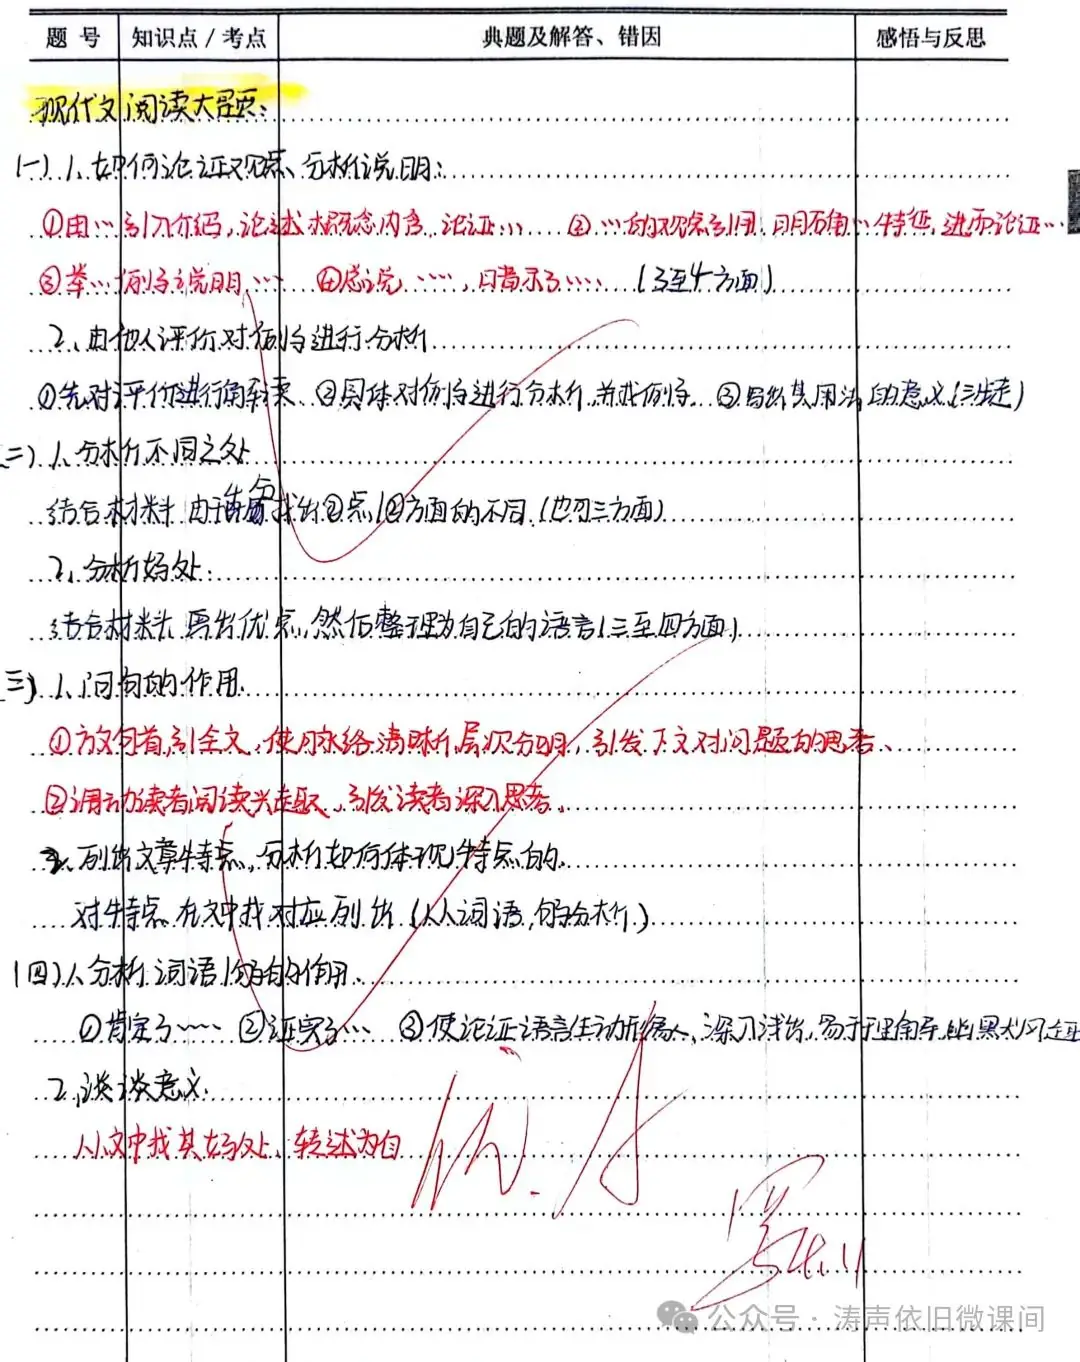 题 号 知识点/考点 典题及解答、错因 感悟与反思
现代文阅读大题:
(一) 1、如何论证观点、分析说明:
①由…引入介绍,论述概念内容,论证… ②…的观点引用,明确…特征,进而论证…
③举…例子说明… ④总说……,昭示了…… (3至4方面)
2、由他人评价对例子进行分析
①先对评价进行解读 ②具体对例子进行分析,并找例子 ③写出其用法的意义(三步走)
二) 1、分析不同之处
结合材料 由于 找出②点/②方面的不同(也可三方面)
2、分析好处:
结合材料 写出优点,然后整理为自己的语言(三至四方面)
三) 1、问句的作用
①放句首,引全文,使脉络清晰,层次分明,引发下文对问题的思考、
②调动读者阅读兴趣,引发读者深入思考。
2、列出文章特点,分析如何体现特点的.
对特点在文中找对应列出(从词语,句分析)
(四) 1、分析词语/句子的作用、
①肯定了…… ②证实了… ③使论证语言生动形象,深入浅出,易于理解,幽默风趣
2、谈谈意义
从文中找其好处、转述为自
优.
公众号·涛声依旧微课间